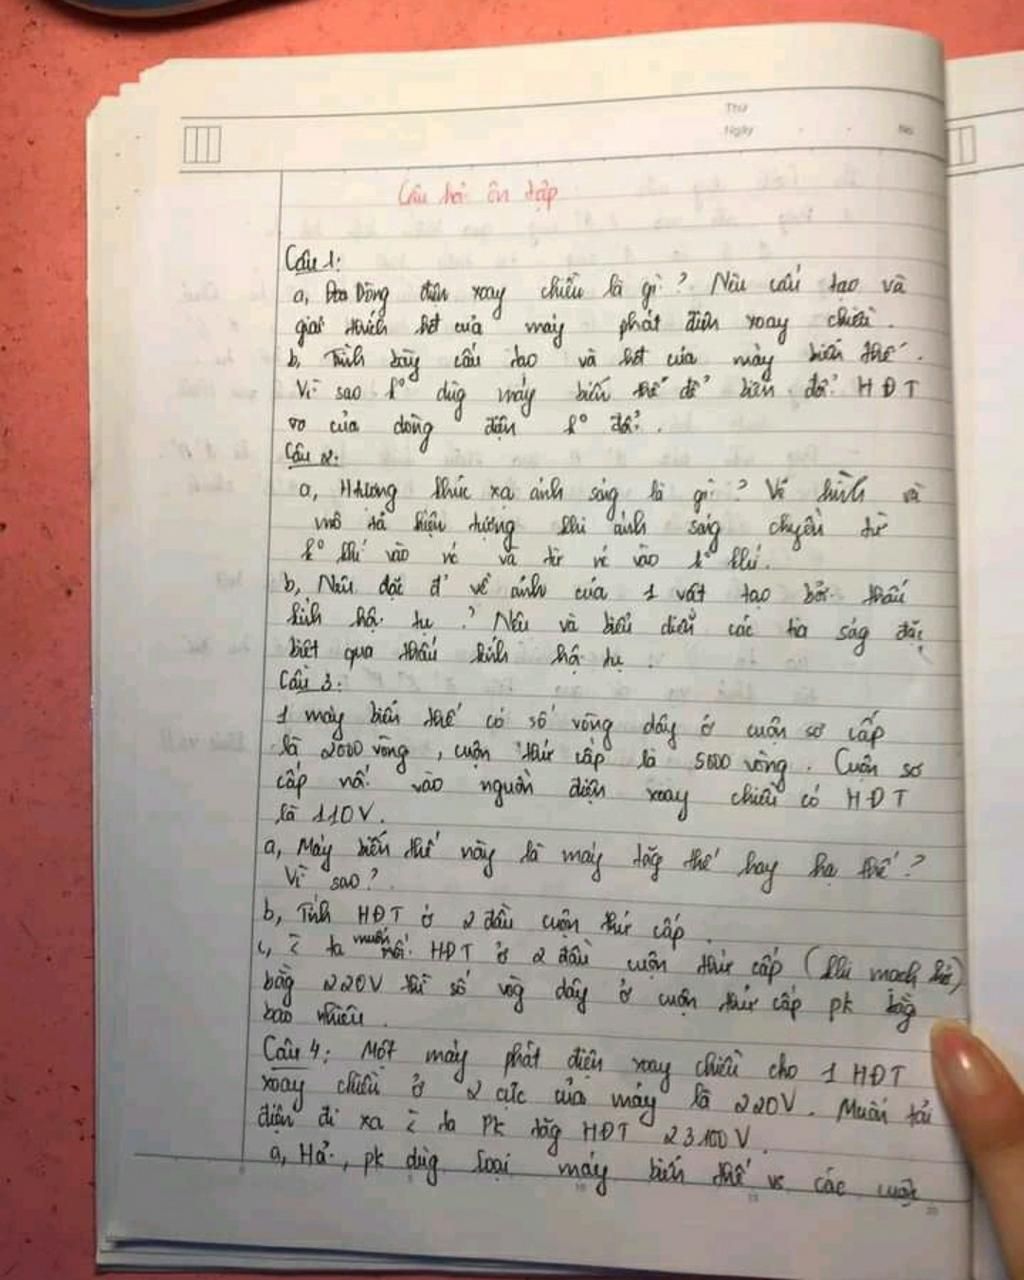 Thứ
Ngày
No
Câu hỏi ôn tập
Câu 1:
a, Dòng điện xoay chiều là gì? Nêu cấu tạo và
giải thích hđt của máy phát điện xoay chiều.
b, Trình bày cấu tạo và hđt của máy biến thế.
Vì sao k° dùg máy biến thế để biến đổi HĐT
của dòng điện k° đổi.
Câu 2:
a, Htượng khúc xạ ánh sáng là gì? Vẽ hình và
mô tả hiện tượng khi ánh sáng chuyền từ
k° khí vào nc và từ nc vào k° khí.
b, Nêu đặc đ' về ảnh của 1 vật tạo bởi thấu
kính hội tụ? Nêu và biểu diễn các tia ság đặc
biệt qua thấu kính hội tụ.
Câu 3:
1 máy biến thế có số vòng dây ở cuộn sơ cấp
là 2000 vòng, cuộn thứ cấp là 5000 vòng. Cuộn sơ
cấp nối vào nguồn điện xoay chiều có HĐT
là 110V.
a, Máy biến thế này là máy tăg thế hay hạ thế?
Vì sao?
b, Tính HĐT ở 2 đầu cuộn thứ cấp.
c, ta muốn HĐT ở 2 đầu cuộn thứ cấp (khi mạch hở)
bằg 220V thì số vòg dây ở cuộn thứ cấp pk bằg
bao nhiêu.
Câu 4: Một máy phát điện xoay chiều cho 1 HĐT
xoay chiều ở 2 cực của máy là 220V. Muốn tải
điện đi xa ta pk tăg HĐT 23100V.
a, Hỏi, pk dùg loại máy biến thế vs các cuộn